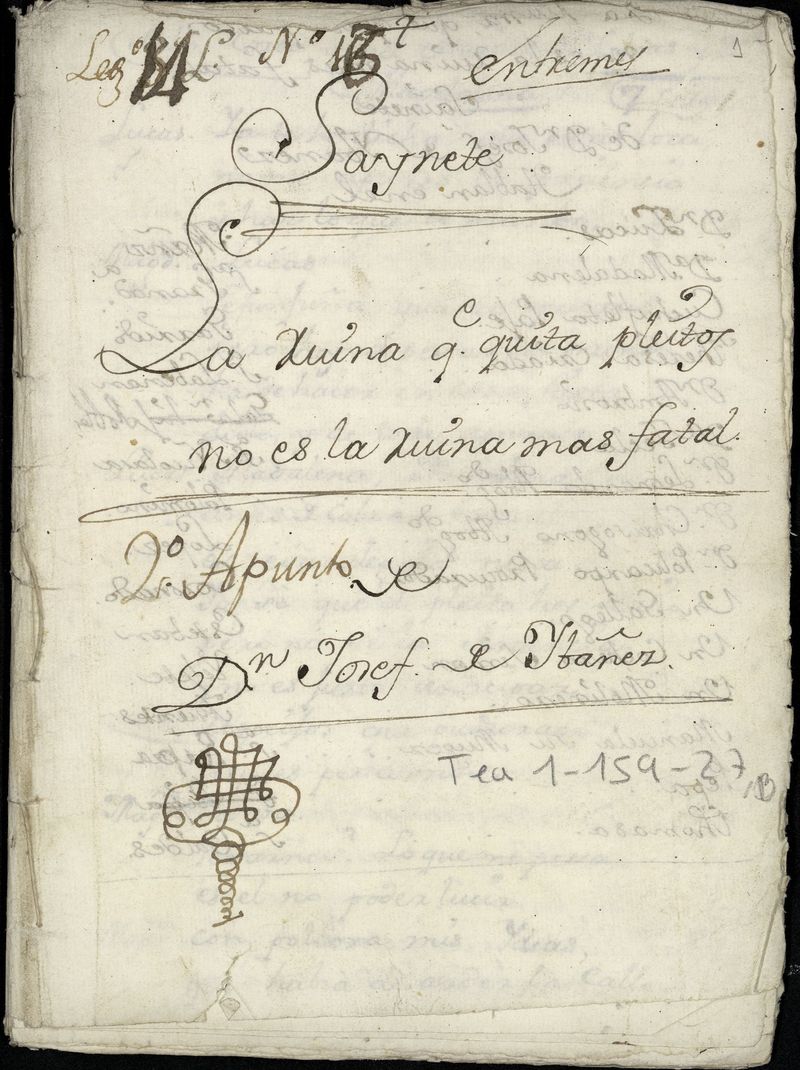 Leg.º 14 L N.º 13
1
entremes
Saynete
La ruina q.e quita pleitos
no es la ruina mas fatal.
2.º Apunto.
Dn Josef. de Ybañez.
Tea 1-159-27, B